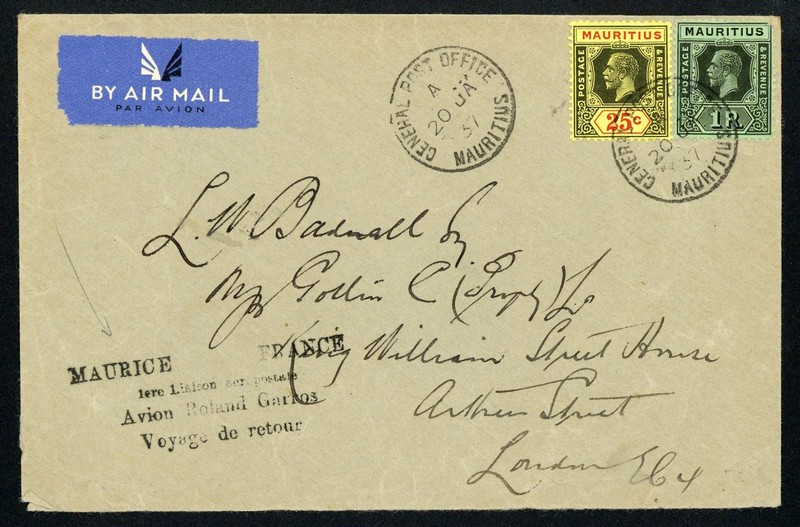 BY AIR MAIL
PAR AVION
GENERAL POST OFFICE
A
20 JA
37
MAURITIUS
MAURITIUS
POSTAGE & REVENUE
25c
MAURITIUS
POSTAGE & REVENUE
1R
20
37
MAURITIUS
L. W.
C
King William Street House
Arthur Street
London EC4
MAURICE FRANCE
1ere Liaison aeropostale
Avion Roland Garros
Voyage de retour